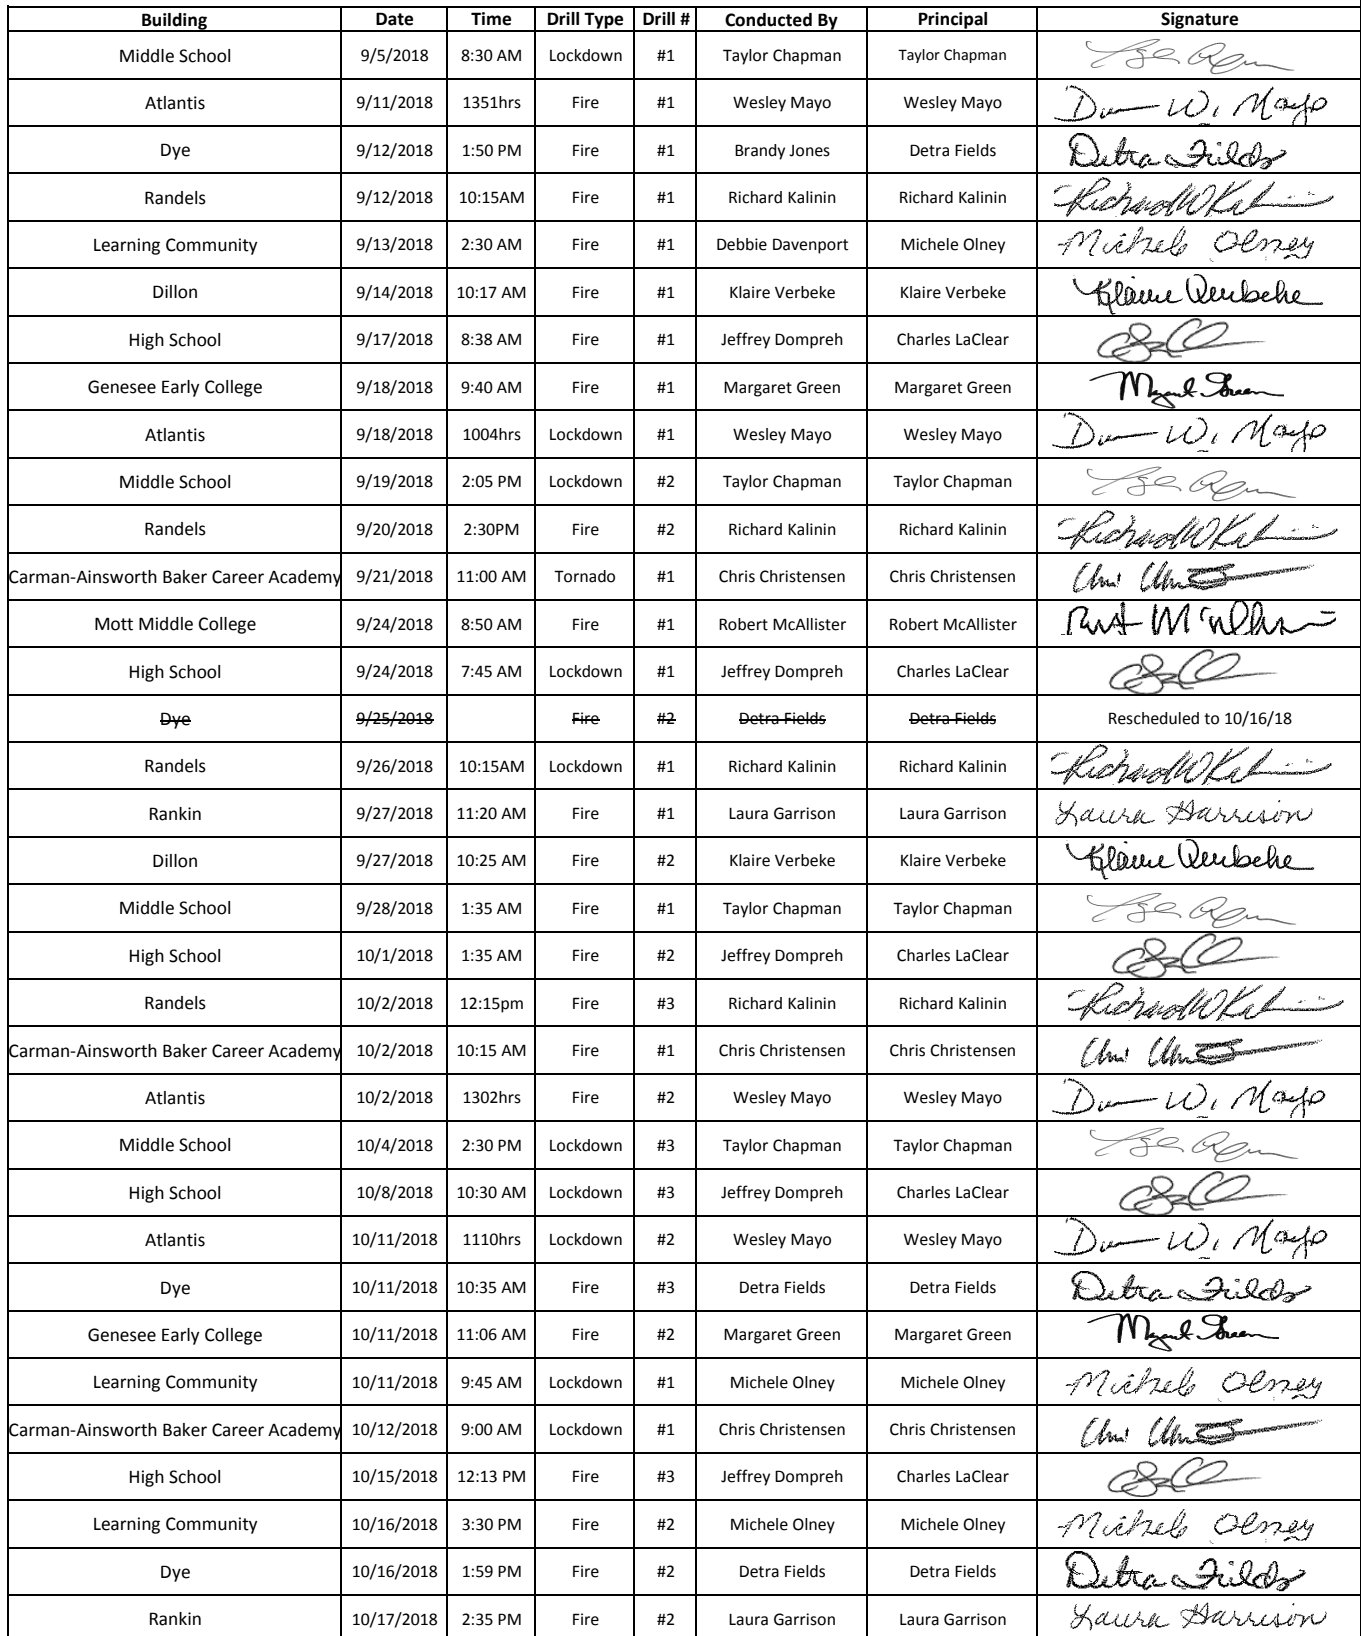 Building Date Time Drill Type Drill # Conducted By Principal Signature
Middle School 9/5/2018 8:30 AM Lockdown #1 Taylor Chapman Taylor Chapman
Atlantis 9/11/2018 1351hrs Fire #1 Wesley Mayo Wesley Mayo D W. Mayo
Dye 9/12/2018 1:50 PM Fire #1 Brandy Jones Detra Fields Detra Fields
Randels 9/12/2018 10:15AM Fire #1 Richard Kalinin Richard Kalinin Richard W Kalinin
Learning Community 9/13/2018 2:30 AM Fire #1 Debbie Davenport Michele Olney Michele Olney
Dillon 9/14/2018 10:17 AM Fire #1 Klaire Verbeke Klaire Verbeke Klaire Verbeke
High School 9/17/2018 8:38 AM Fire #1 Jeffrey Dompreh Charles LaClear
Genesee Early College 9/18/2018 9:40 AM Fire #1 Margaret Green Margaret Green Margaret Green
Atlantis 9/18/2018 1004hrs Lockdown #1 Wesley Mayo Wesley Mayo D W. Mayo
Middle School 9/19/2018 2:05 PM Lockdown #2 Taylor Chapman Taylor Chapman
Randels 9/20/2018 2:30PM Fire #2 Richard Kalinin Richard Kalinin Richard W Kalinin
Carman-Ainsworth Baker Career Academy 9/21/2018 11:00 AM Tornado #1 Chris Christensen Chris Christensen
Mott Middle College 9/24/2018 8:50 AM Fire #1 Robert McAllister Robert McAllister
High School 9/24/2018 7:45 AM Lockdown #1 Jeffrey Dompreh Charles LaClear
Dye 9/25/2018 Fire #2 Detra Fields Detra Fields Rescheduled to 10/16/18
Randels 9/26/2018 10:15AM Lockdown #1 Richard Kalinin Richard Kalinin Richard W Kalinin
Rankin 9/27/2018 11:20 AM Fire #1 Laura Garrison Laura Garrison Laura Garrison
Dillon 9/27/2018 10:25 AM Fire #2 Klaire Verbeke Klaire Verbeke Klaire Verbeke
Middle School 9/28/2018 1:35 AM Fire #1 Taylor Chapman Taylor Chapman
High School 10/1/2018 1:35 AM Fire #2 Jeffrey Dompreh Charles LaClear
Randels 10/2/2018 12:15pm Fire #3 Richard Kalinin Richard Kalinin Richard W Kalinin
Carman-Ainsworth Baker Career Academy 10/2/2018 10:15 AM Fire #1 Chris Christensen Chris Christensen
Atlantis 10/2/2018 1302hrs Fire #2 Wesley Mayo Wesley Mayo D W. Mayo
Middle School 10/4/2018 2:30 PM Lockdown #3 Taylor Chapman Taylor Chapman
High School 10/8/2018 10:30 AM Lockdown #3 Jeffrey Dompreh Charles LaClear
Atlantis 10/11/2018 1110hrs Lockdown #2 Wesley Mayo Wesley Mayo D W. Mayo
Dye 10/11/2018 10:35 AM Fire #3 Detra Fields Detra Fields Detra Fields
Genesee Early College 10/11/2018 11:06 AM Fire #2 Margaret Green Margaret Green Margaret Green
Learning Community 10/11/2018 9:45 AM Lockdown #1 Michele Olney Michele Olney Michele Olney
Carman-Ainsworth Baker Career Academy 10/12/2018 9:00 AM Lockdown #1 Chris Christensen Chris Christensen
High School 10/15/2018 12:13 PM Fire #3 Jeffrey Dompreh Charles LaClear
Learning Community 10/16/2018 3:30 PM Fire #2 Michele Olney Michele Olney Michele Olney
Dye 10/16/2018 1:59 PM Fire #2 Detra Fields Detra Fields Detra Fields
Rankin 10/17/2018 2:35 PM Fire #2 Laura Garrison Laura Garrison Laura Garrison